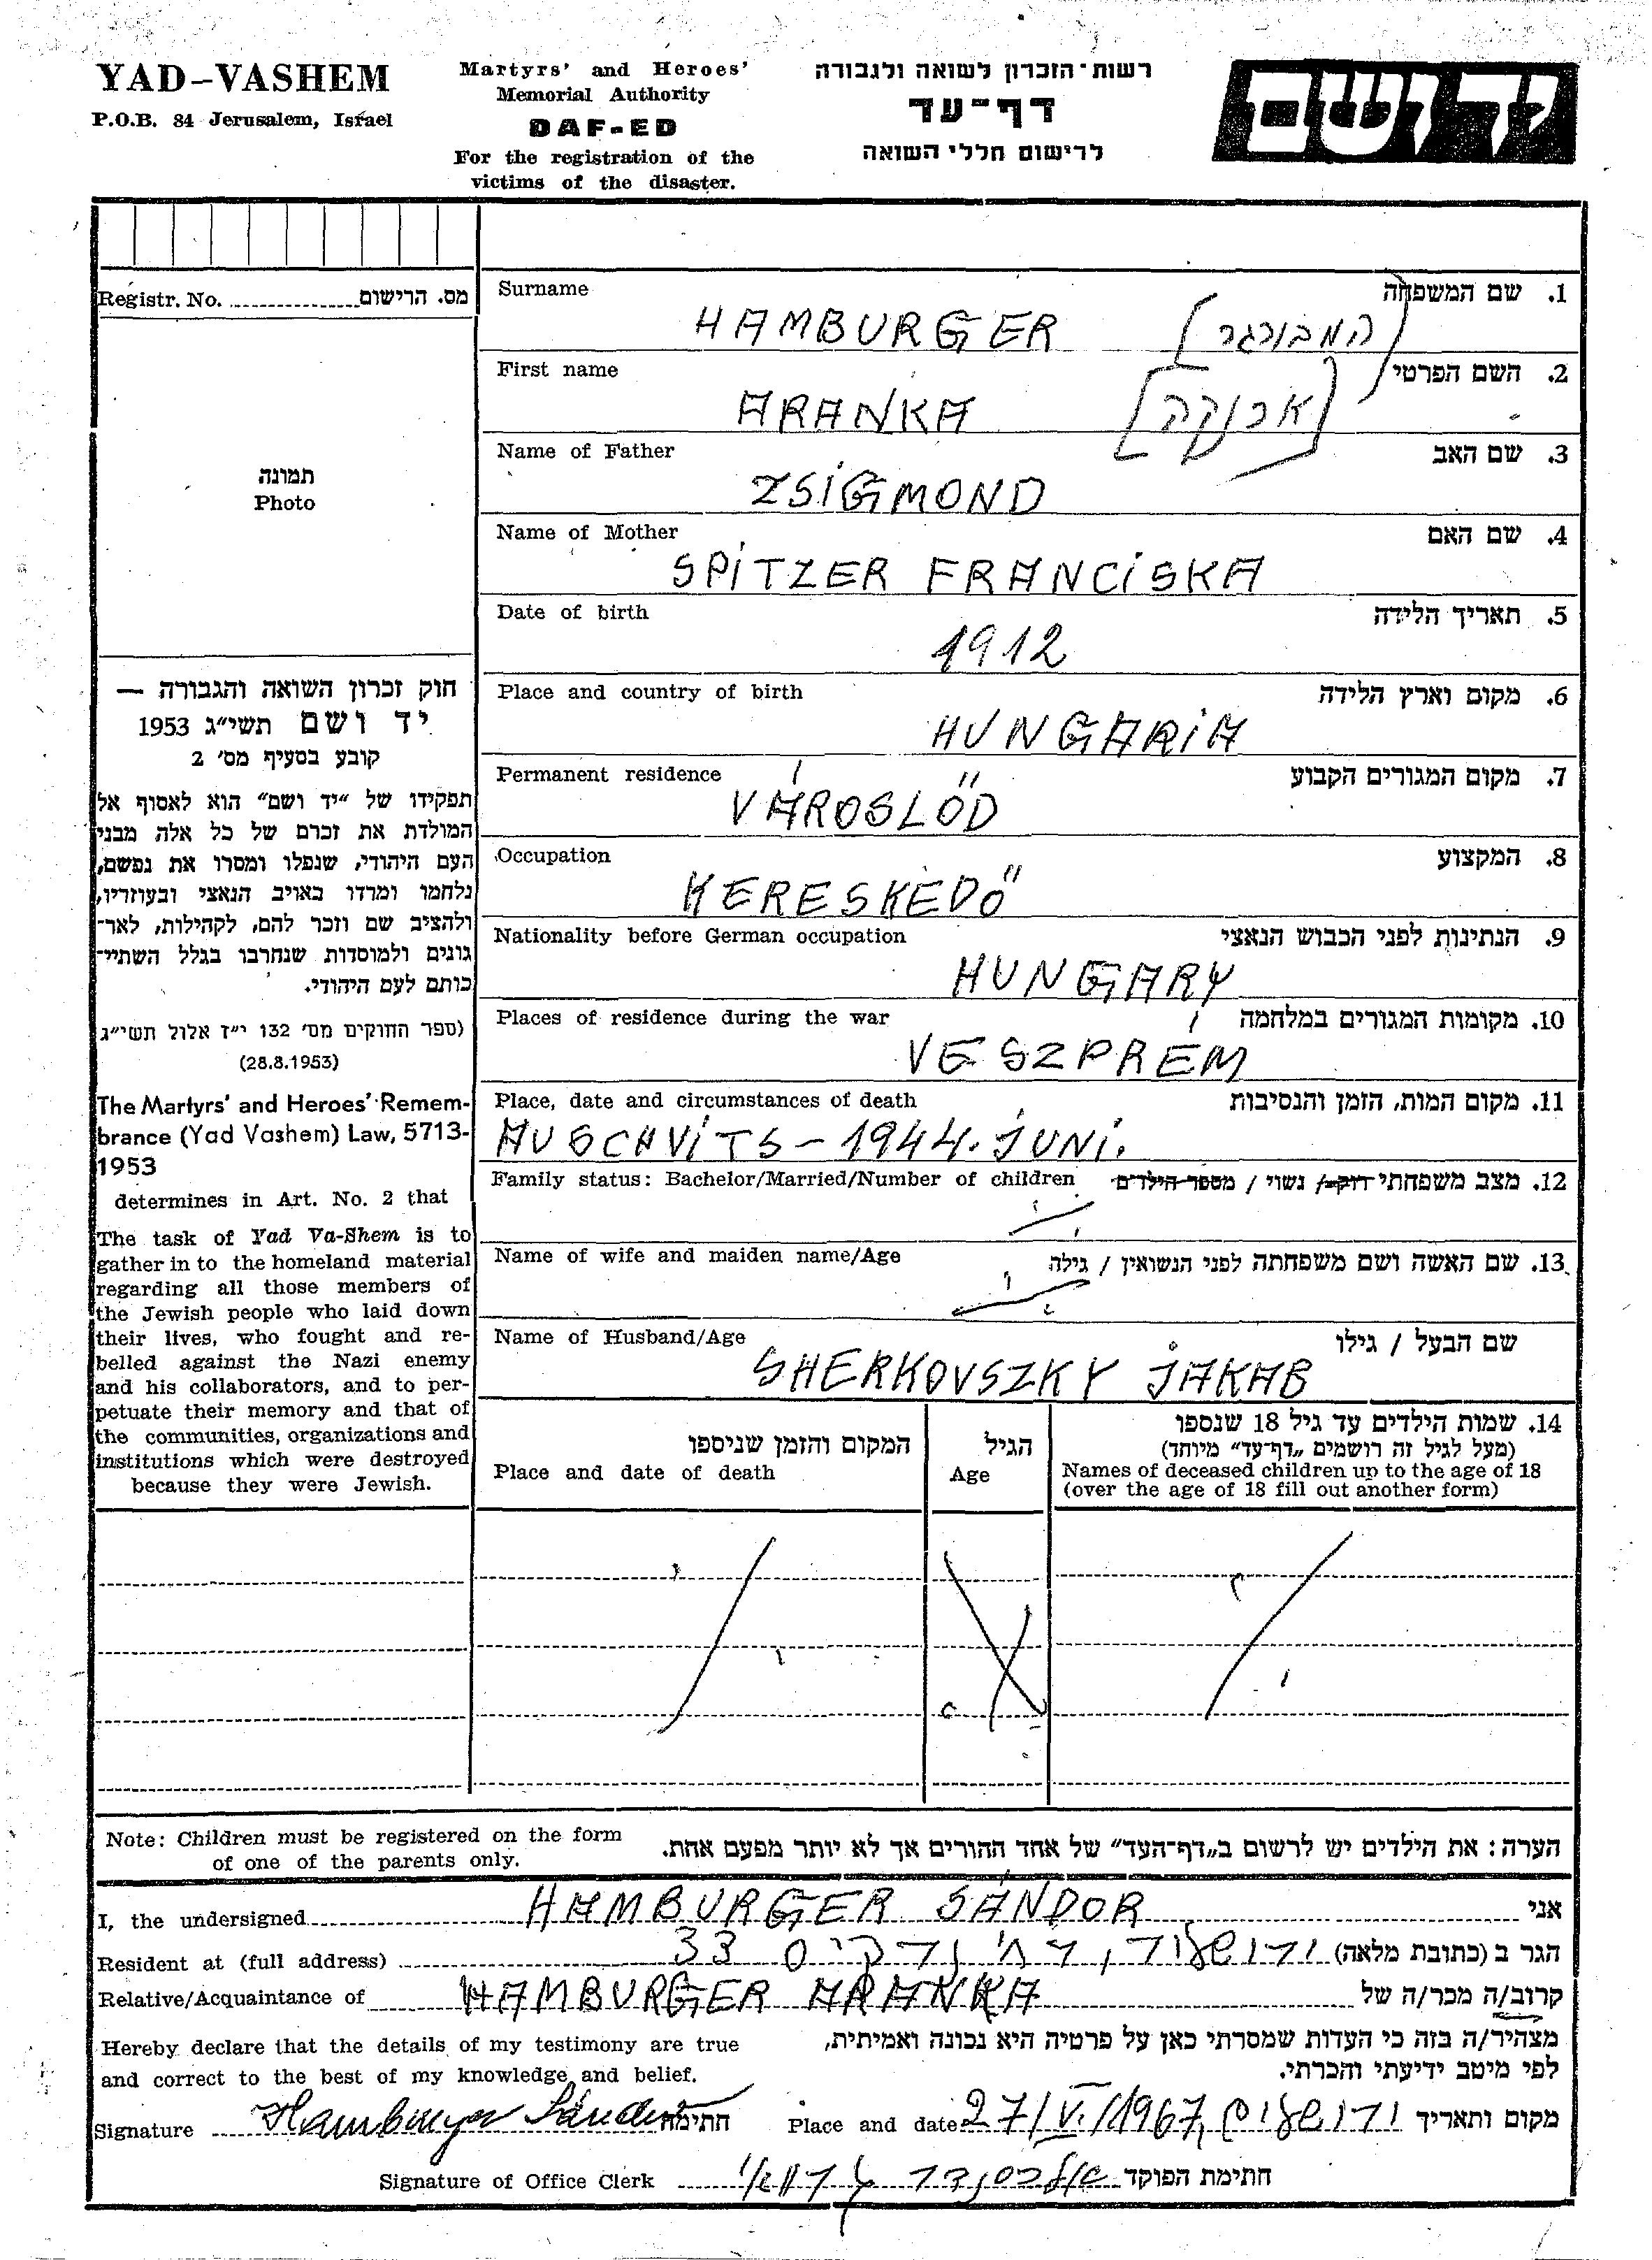 YAD-VASHEM
P.O.B. 84 Jerusalem, Israel
Martyrs' and Heroes'
Memorial Authority
DAF-ED
For the registration of the
victims of the disaster.
רשות-הזכרון לשואה ולגבורה
דף-עד
לרישום חללי השואה
יד ושם
Registr. No. מס. הרישום
תמונה
Photo
חוק זכרון השואה והגבורה —
יד ושם תשי"ג 1953
קובע בסעיף מס' 2
תפקידו של "יד ושם" הוא לאסוף אל
המולדת את זכרם של כל אלה מבני
העם היהודי, שנפלו ומסרו את נפשם,
נלחמו ומרדו באויב הנאצי ובעוזריו,
ולהציב שם וזכר להם, לקהילות, לאר-
גונים ולמוסדות שנחרבו בגלל השתיי-
כותם לעם היהודי.
(ספר החוקים מס' 132 י"ז אלול תשי"ג
(28.8.1953)
The Martyrs' and Heroes' Remem-
brance (Yad Vashem) Law, 5713-
1953
determines in Art. No. 2 that
The task of Yad Va-Shem is to
gather in to the homeland material
regarding all those members of
the Jewish people who laid down
their lives, who fought and re-
belled against the Nazi enemy
and his collaborators, and to per-
petuate their memory and that of
the communities, organizations and
institutions which were destroyed
because they were Jewish.
Surname 1. שם המשפחה
HAMBURGER [המבורגר]
First name 2. השם הפרטי
ARANKA [ארנקה]
Name of Father 3. שם האב
ZSIGMOND
Name of Mother 4. שם האם
SPITZER FRANCISKA
Date of birth 5. תאריך הלידה
1912
Place and country of birth 6. מקום וארץ הלידה
HUNGARIA
Permanent residence 7. מקום המגורים הקבוע
VÁROSLŐD
Occupation 8. המקצוע
KERESKEDŐ
Nationality before German occupation 9. הנתינות לפני הכבוש הנאצי
HUNGARY
Places of residence during the war 10. מקומות המגורים במלחמה
VESZPRÉM
Place, date and circumstances of death 11. מקום המות, הזמן והנסיבות
AUSCHVITS - 1944. JUNI.
Family status: Bachelor/Married/Number of children 12. מצב משפחתי רוק/ נשוי / מספר הילדים
Name of wife and maiden name/Age 13. שם האשה ושם משפחתה לפני הנשואין / גילה
Name of Husband/Age שם הבעל / גילו
SHERKOVSZKY JAKAB
14. שמות הילדים עד גיל 18 שנספו
(מעל לגיל זה רושמים "דף-עד" מיוחד)
Names of deceased children up to the age of 18
(over the age of 18 fill out another form)
הגיל
Age
המקום והזמן שניספו
Place and date of death
Note: Children must be registered on the form
of one of the parents only.
הערה: את הילדים יש לרשום ב"דף-העד" של אחד ההורים אך לא יותר מפעם אחת.
I, the undersigned HAMBURGER SÁNDOR אני
Resident at (full address) 33 הגר ב (כתובת מלאה)
Relative/Acquaintance of HAMBURGER ARANKA קרוב/ה מכר/ה של
Hereby declare that the details of my testimony are true
and correct to the best of my knowledge and belief.
מצהיר/ה בזה כי העדות שמסרתי כאן על פרטיה היא נכונה ואמיתית,
לפי מיטב ידיעתי והכרתי.
Signature Hamburger Sándor חתימה Place and date 27/VI/1967, ירושלים מקום ותאריך
Signature of Office Clerk חתימת הפוקד